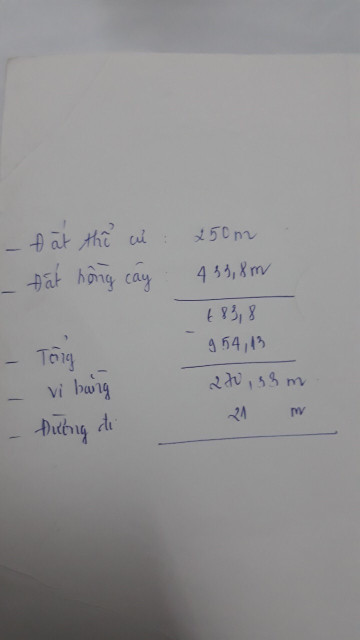 - Đất thổ cư : 250m
- Đất trồng cây : 433,8m
683,8
-
- Tổng 954,13
- Vi bằng 270,33 m
- Đường đi 21 m